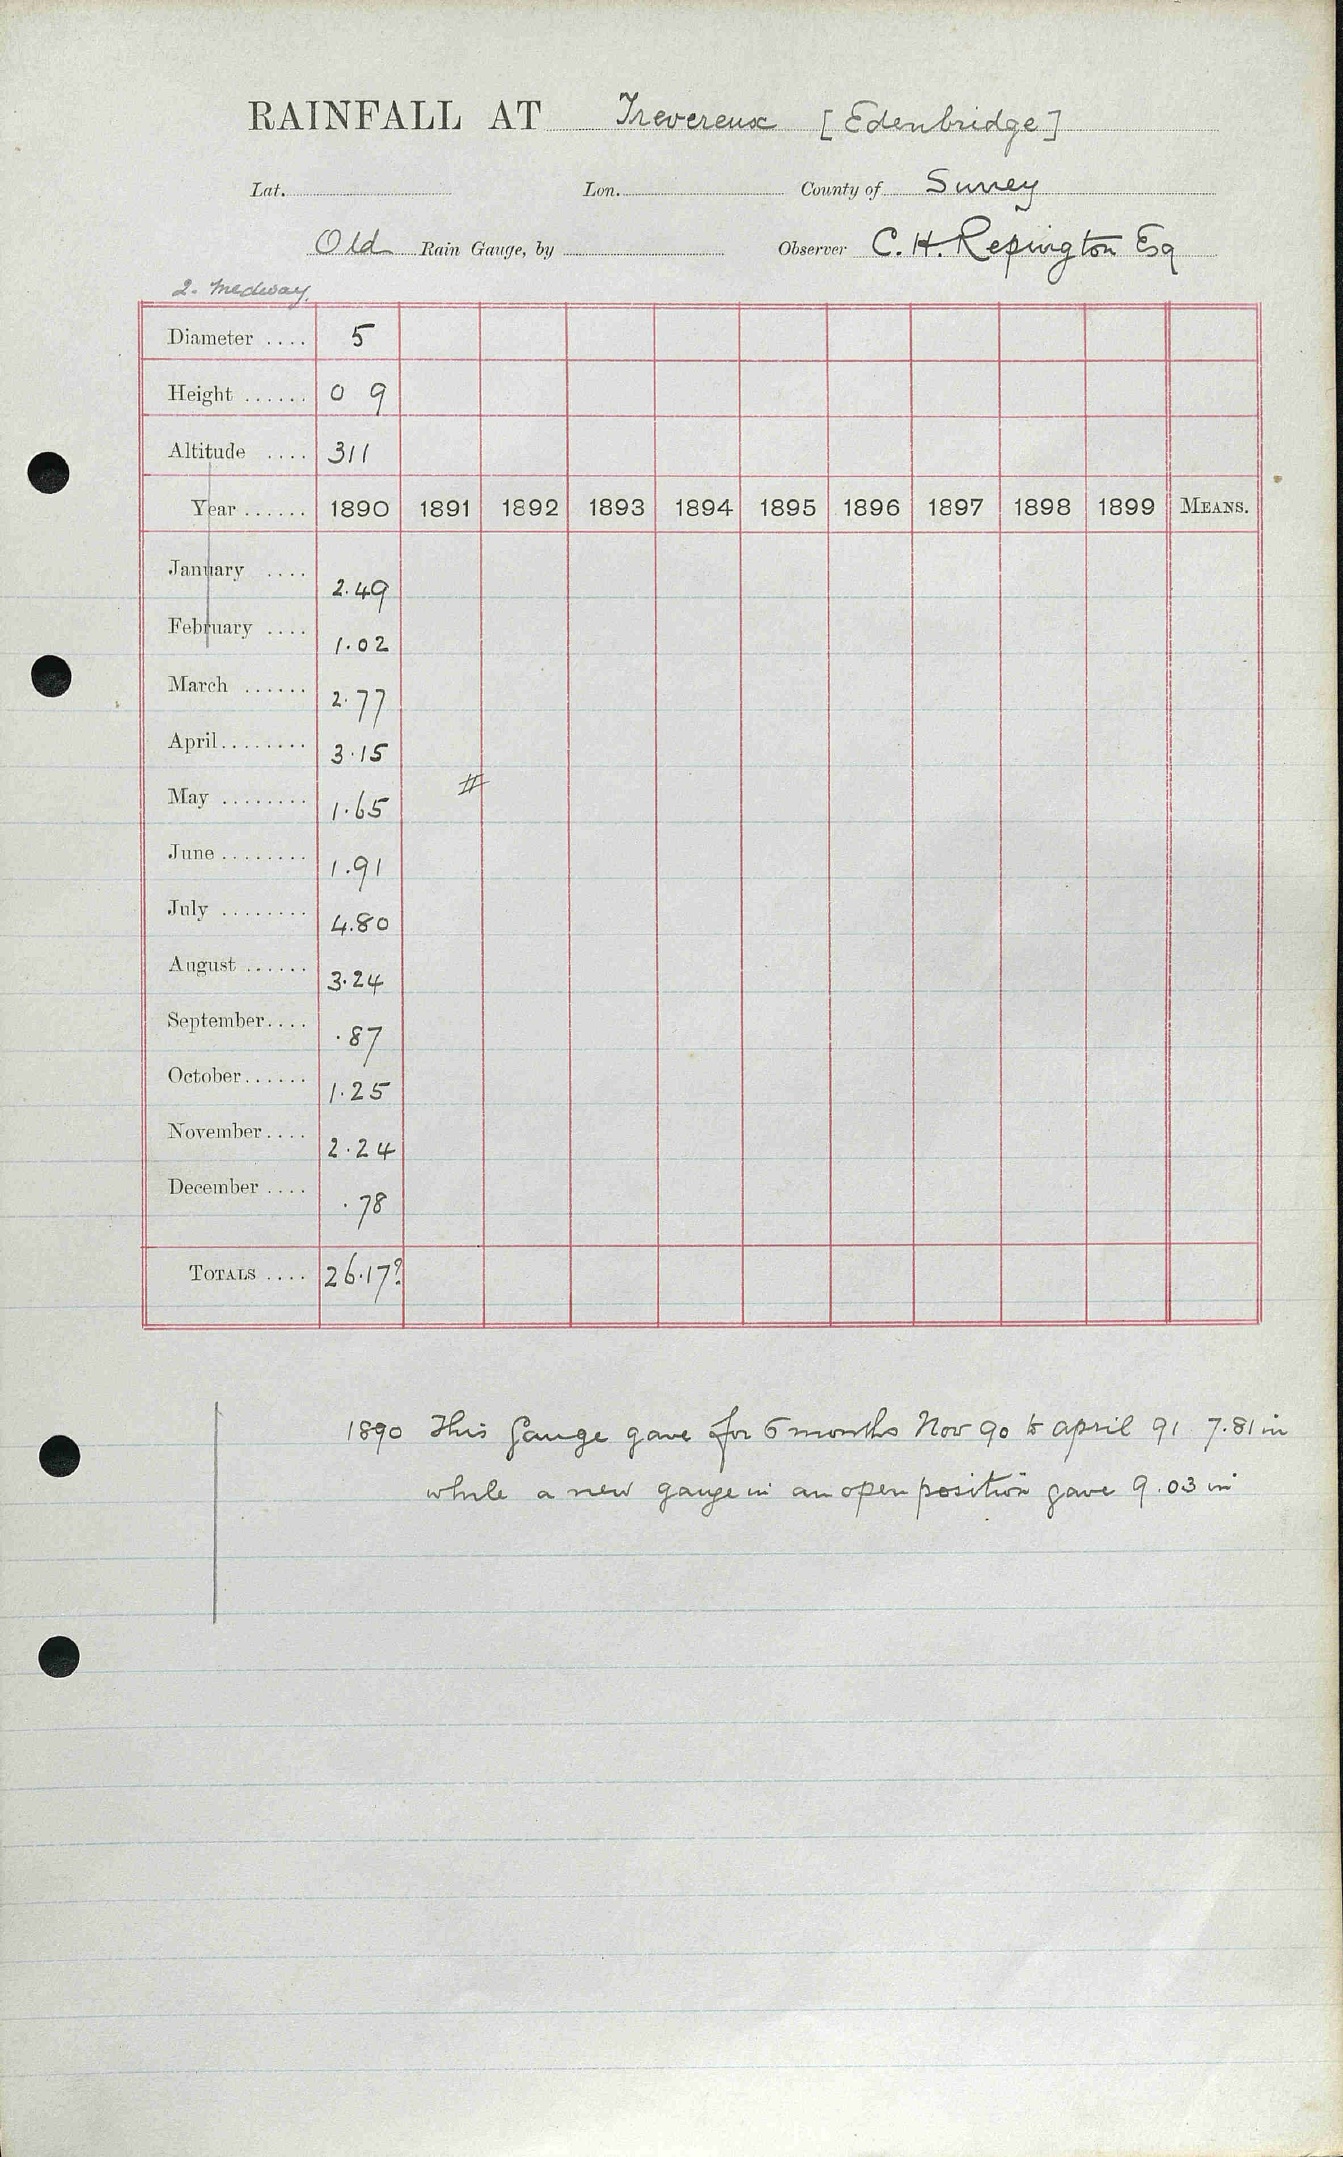 RAINFALL AT Trevereux [Edenbridge]
Lat. Lon. County of Surrey
Old Rain Gauge, by Observer C. H. Repington Esq
2. Medway.
Diameter .... 5
Height ...... 0 9
Altitude .... 311
Year ...... 1890 1891 1892 1893 1894 1895 1896 1897 1898 1899 MEANS.
January .... 2.49
February .... 1.02
March ...... 2.77
April ........ 3.15
May ........ 1.65
#
June ........ 1.91
July ........ 4.80
August ...... 3.24
September .... .87
October ...... 1.25
November .... 2.24
December .... .78
TOTALS .... 26.17?
1890 This Gauge gave for 6 months Nov 90 to april 91 7.81 in
while a new gauge in an open position gave 9.03 in